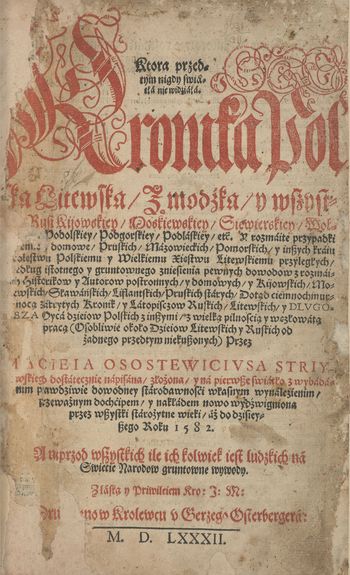 Ktora przed-
tym nigdy świá-
tłá nie widziáłá.
Kronika Pol
ska Litewska / Zmodźka / y wszyst-
Rusi Kijowskiey / Moskiewskiey / Siewierskiey / Woł-
Podolskiey / Podgorskiey / Podláskiey / etc. Y rozmáite przypadki
domowe / Pruskich / Mázowieckich / Pomorskich / y inszych kráin
Krolestwu Polskiemu y Wielkiemu Xięstwu Litewskiemu przyległych /
według istotnego y gruntownego zniesienia pewnych dowodow z rozmái-
Historikow y Autorow postronnych / y domowych / y Kijowskich / Mo-
skiewskich / Sławáńskich / Liflantskich / Pruskich stárych / Dotąd ciemnochmur-
nocą zákrytych Kronik / y Látopiszcow Ruskich / Litewskich / y DLVGO-
SZA Oycá dzieiow Polskich z inszymi / z wielką pilnością y węzłowátą
pracą (Osobliwie około Dzieiow Litewskich y Ruskich od
żadnego przedtym niekuszonych) Przez
MACIEIA OSOSTEWICIVSA STRIY-
kowskiego dostátecznie nápisána / złożona / y ná pierwsze świátło z wybáda-
nim prawdziwie dowodney stárodawności własnym wynálezienim /
przeważnym dochćipem / y nakłádem nowo wydźwigniona
przez wszystki stárożytne wieki / áż do dzisiey-
szego Roku 1582.
A naprzod wszystkich ile ich kolwiek iest ludzkich ná
Świecie Narodow gruntowne wywody.
Z łáską y Priwileiem Kro: J: M:
Drukowano w Krolewcu v Gerzego Osterbergera:
M. D. LXXXII.